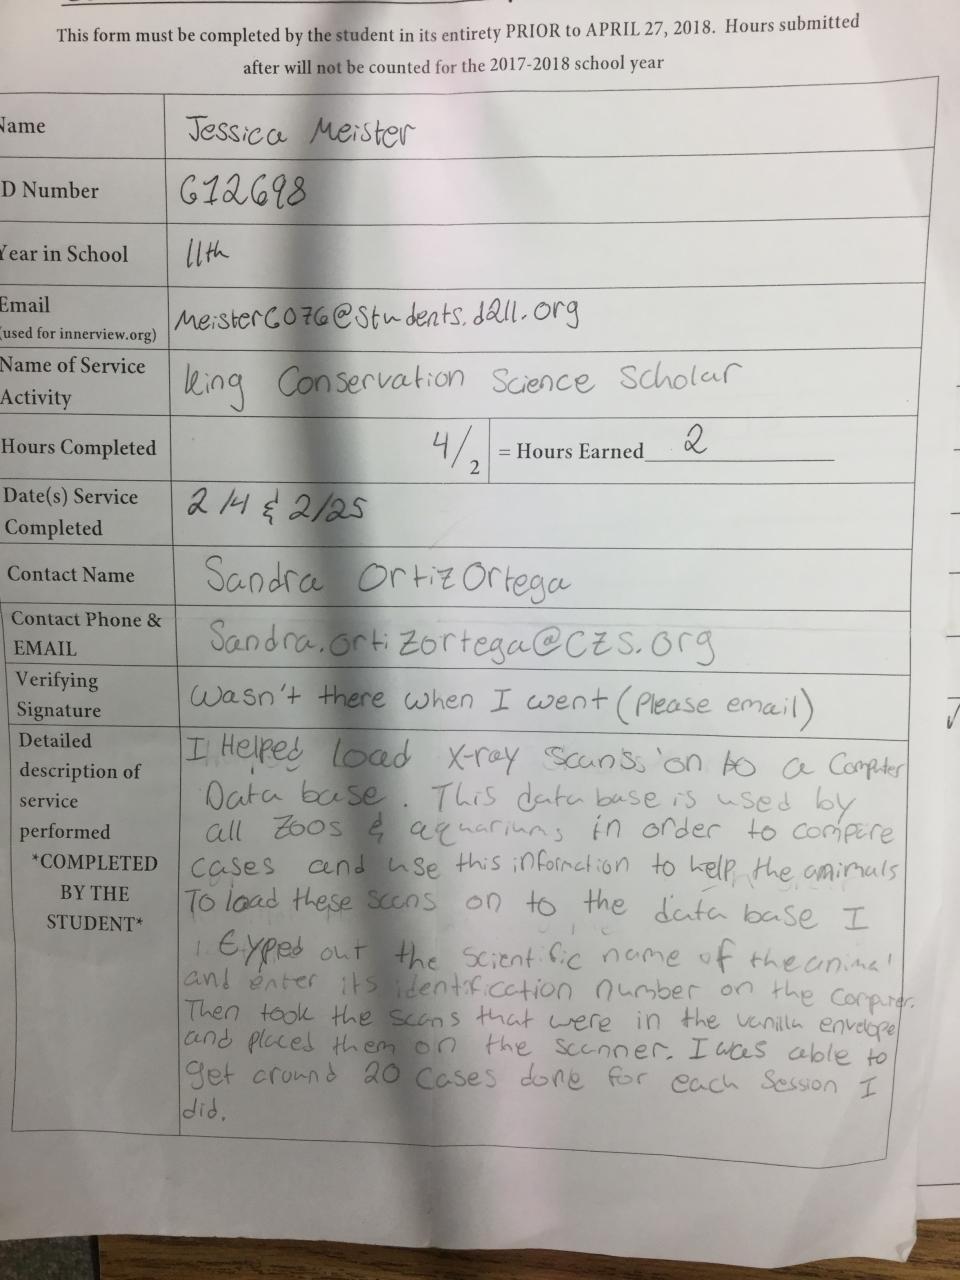 This form must be completed by the student in its entirety PRIOR to APRIL 27, 2018. Hours submitted
after will not be counted for the 2017-2018 school year
Name
Jessica Meister
D Number
612698
Year in School
11th
Email
(used for innerview.org)
Meister6076@students.d211.org
Name of Service
Activity
King Conservation Science Scholar
Hours Completed
4/2
= Hours Earned 2
Date(s) Service
Completed
2/4 & 2/25
Contact Name
Sandra OrtizOrtega
Contact Phone &
EMAIL
Sandra.ortizortega@czs.org
Verifying
Signature
Wasn't there when I went (Please email)
Detailed
description of
service
performed
*COMPLETED
BY THE
STUDENT*
I Helped load X-ray scans on to a Computer
Data base. This data base is used by
all Zoos & aquariums in order to compare
cases and use this information to help the animals
To load these scans on to the data base I
typed out the scientific name of the animal
and enter its identification number on the computer.
Then took the scans that were in the vanilla envelope
and placed them on the scanner. I was able to
get around 20 cases done for each Session I
did.